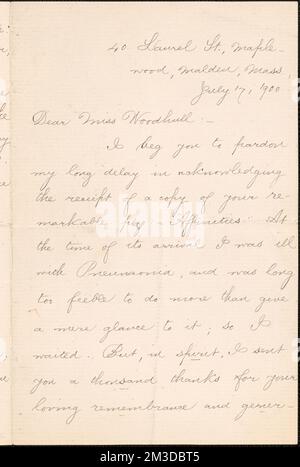 40 Laurel St., Maple-
wood, Malden, Mass.
July 17, 1900
Dear Miss Woodhull:-
I beg you to pardon
my long delay in acknowledging
the receipt of a copy of your re-
markable Affinities. At
the time of its arrival I was ill
with Pneumonia, and was long
too feeble to do more than give
a mere glance to it; so I
waited. But, in spirit, I sent
you a thousand thanks for your
loving remembrance and gener-
alamy
alamy
Image ID: 2M3DBT5
www.alamy.com